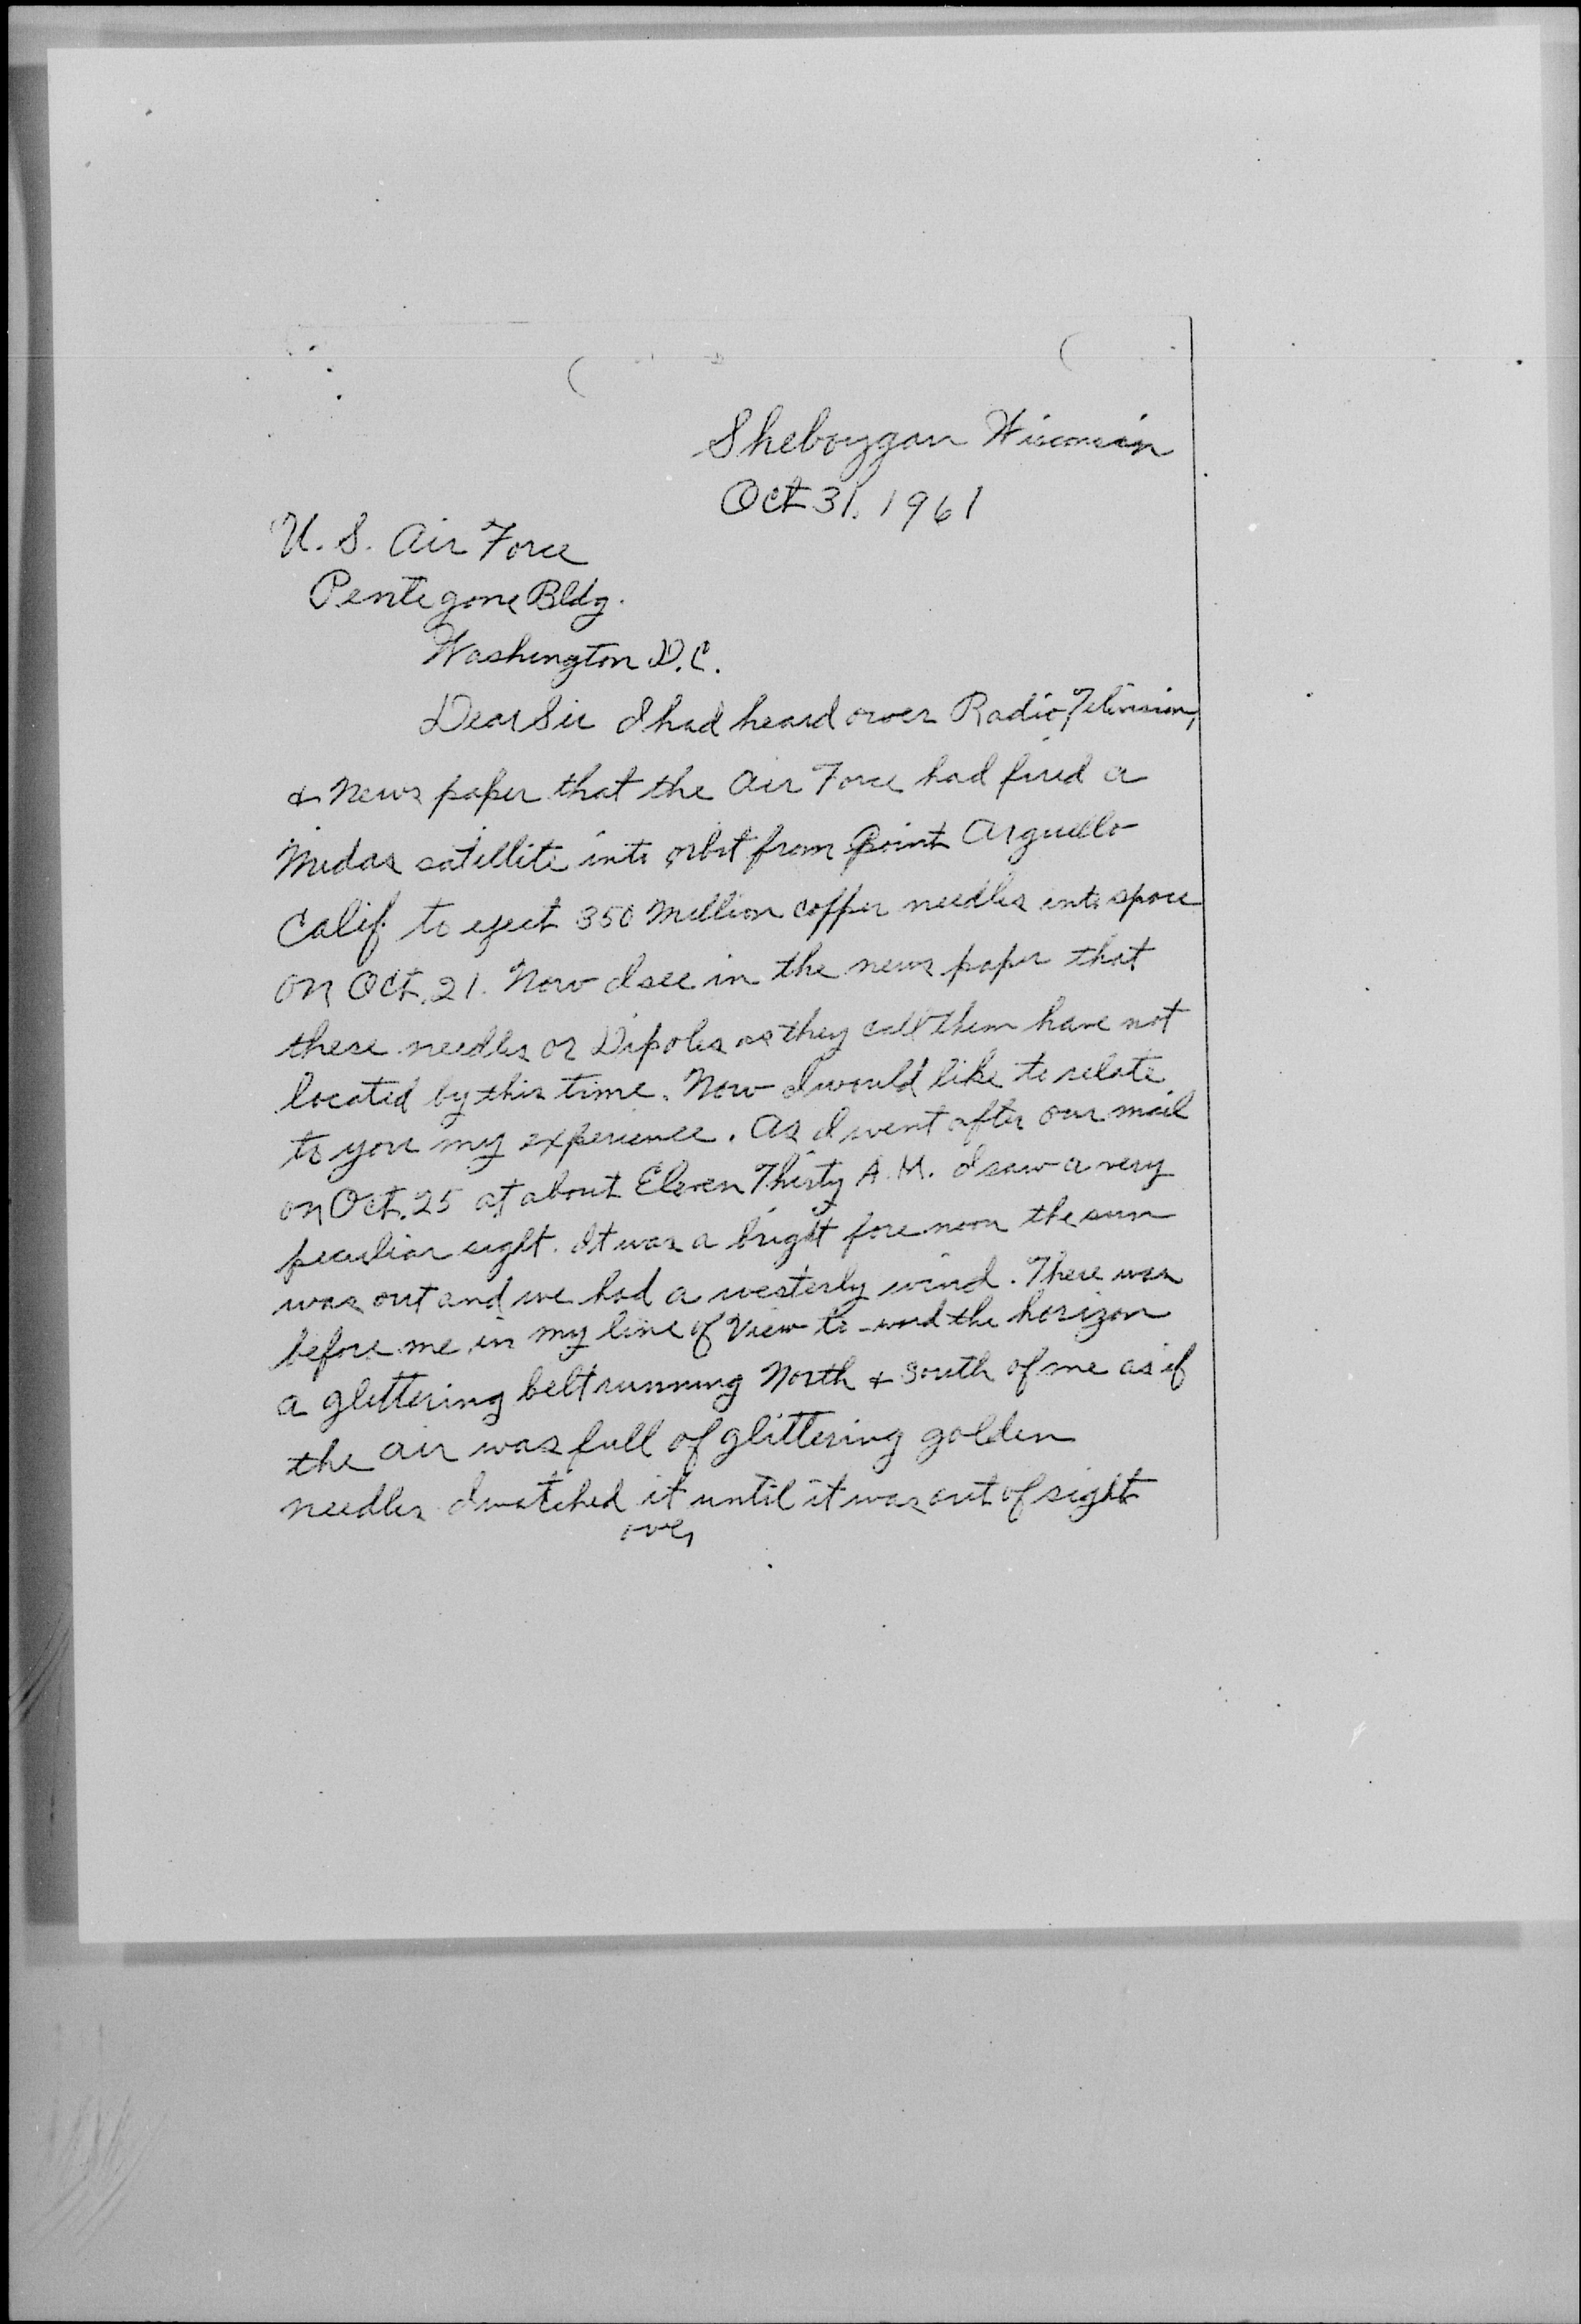 Sheboygan Wisconsin
Oct 31, 1961
U. S. Air Force
Pentegone Bldg.
Washington D.C.
Dear Sir I had heard over Radio, Television,
& News paper that the Air Force had fired a
Midas satellite into orbit from Point Arguello
Calif. to eject 350 Million copper needles into space
on Oct. 21. Now I see in the news paper that
these needles or Dipoles as they call them have not
located by this time. Now I would like to relate
to you my experience. As I went after our mail
on Oct. 25 at about Eleven Thirty A.M. I saw a very
peculiar sight. It was a bright fore noon the sun
was out and we had a westerly wind. There was
before me in my line of View to-ward the horizon
a glittering belt running North & South of me as if
the air was full of glittering golden
needles I watched it until it was out of sight
over